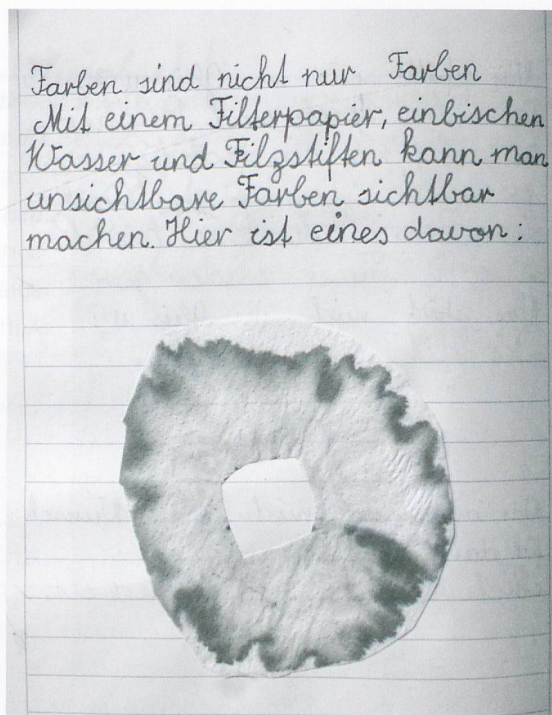 Farben sind nicht nur Farben
Mit einem Filterpapier, einbischen
Wasser und Filzstiften kann man
unsichtbare Farben sichtbar
machen. Hier ist eines davon: